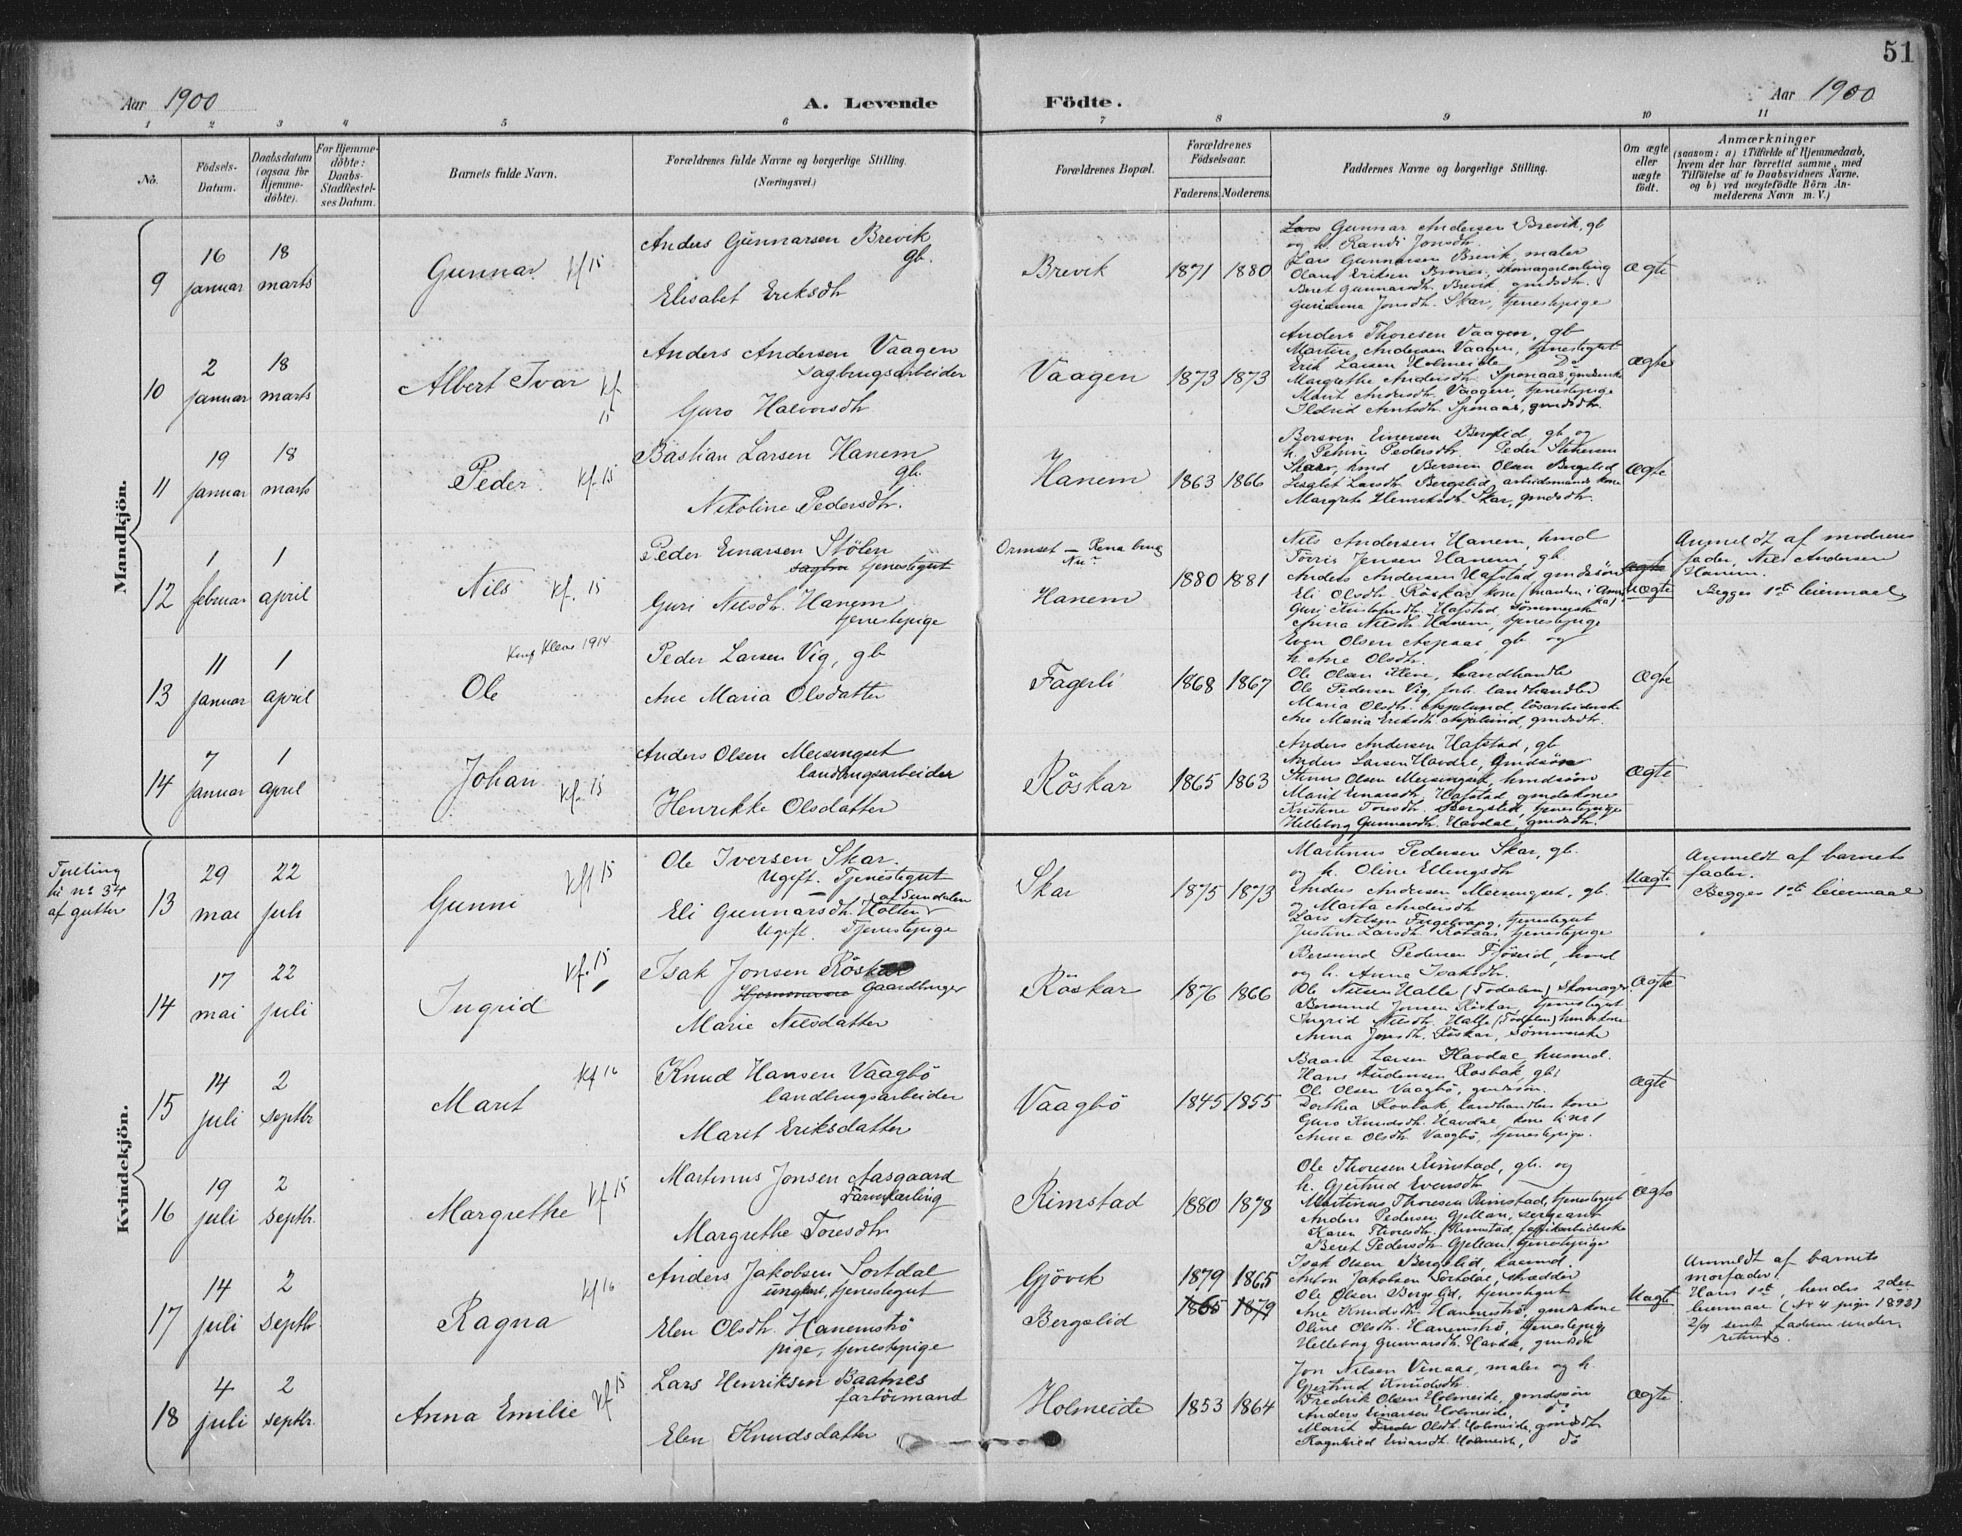 51
Aar 1900
A. Levende Födte.
Aar 1900
1 2 3 4 5 6 7 8 9 10 11
No.
Födsels-Datum.
Daabsdatum (ogsaa for Hjemmedöbte).
For Hjemmedöbte: Daabs-Stadfæstelses Datum.
Barnets fulde Navn.
Forældrenes fulde Navne og borgerlige Stilling.
(Næringsvei.)
Forældrenes Bopæl.
Forældrenes Födselsaar.
Faderens. Moderens.
Faddernes Navne og borgerlige Stilling.
Om ægte eller uægte födt.
Anmærkninger
(saasom: a) i Tilfælde af Hjemmedaab,
hvem der har forrettet samme, med
Tilföielse af to Daabsvidners Navne.
og b) ved uægtefödte Börn An-
melderens Navn m. V.)
Mandkjön.
9
16 januar
18 marts
Gunnar kf 15
Anders Gunnarsen Brevik
gb.
Elisabet Eriksdtr
Brevik
1871 1880
Lars Gunnar Andersen Brevik, gb
og h. Randi Jonsdtr.
Lars Gunnarsen Brevik, maler
Olaus Eriksen Brones, skomagerlærling
Beret Gunnarsdtr. Brevik, gmdsdtr.
Gurianna Jonsdtr. Skar, tjenestepige
ægte
10
2 januar
18 marts
Albert Ivar kf. 15
Anders Andersen Vaagen
sagbrugsarbeider
Guro Halvorsdtr
Vaagen
1873 1873
Anders Thoresen Vaagen, gb
Martin Andersen Vaagen, tjenestegut
Erik Larsen Holmeide Do
Margrethe Andersdtr. Sponaas, gmdsenke
Marit Andersdtr. Vaagen, tjenestepige
Ildrid Arntsdtr. Sponaas, gmdsdtr.
ægte
11
19 januar
18 marts
Peder. kf. 15
Bastian Larsen Hanem
gb.
Nikoline Pedersdtr.
Hanem
1863 1866
Bersven Einersen Bergslid, gb. og
h. Petrine Pedersdtr. Peder Steffensen
Skar, hmd Bersven Olsen Bergslid
Lisabet Larsdtr Bergslid, arbeidsmands kone
Margrete Henriksdtr. Skar, gmdsdtr.
ægte
12
1 februar
1 april
Nils kf. 15
Peder Einarsen Stölen
sagbr tjenestegut
Guri Nilsdtr. Hanem
tjenestepige
Ormset – Rena brug
Nu
Hanem
1880 1881
Nils Andersen Hanem, hmd
Torris Jensen Hanem, gb.
Anders Andersen Hafstad, gmdssön
Eli Olsdtr. Röskar, kone (manden i Amerika)
Guri Kristofersdtr. Hafstad sömmerske
Anna Nilsdtr. Hanem, tjenestepige
ægte
uægte
Anmeldt af moderens
fader, Nils Andersen
Hanem.
Begges 1ste leiermaal
13
11 januar
1 april
Konf Kleve 1914
Ole
Peder Larsen Vig, gb
Ane Maria Olsdatter
Fagerli
1868 1867
Even Olsen Aspaas, gb. og
h. Ane Olsdtr.
Ole Olsen Kleve, handhandler
Ole Pedersen Vig, forh. landhandler
Maria Olsdtr. Aspelund, lösarbeiderske
Ane Maria Eriksdtr. Aspelund, gmdsdtr.
ægte
14
7 januar
1 april
Johan kf. 15
Anders Olsen Meisingset
landbrugsarbeider
Henrikke Olsdatter
Röskar
1865 1863
Anders Andersen Hafstad, gb
Anders Larsen Havdal, gmdssön
Stinus Olsen Meisingset, hmdssön
Marit Einarsdtr. Hafstad gmdskone
Kristine Toresdtr. Bergslid, tjenestepige
Helleborg Gunnarsdtr. Havdal, gmdsdtr.
ægte
Kvindekjön.
Tvilling
til no 34
af gutter
13
29 mai
22 juli
Gunni kf 15
Ole Iversen Skar.
Ugift. Tjenestegut
Eli Gunnarsdtr. Holten af Sundalen
Ugift. Tjenestepige
Skar
1875 1873
Martinus Pedersen Skar, gb.
og h. Oline Ellingsdtr
Anders Andersen Meisingset, gb.
og Marta Andersdtr
Lars Nilsen Fugelvaag, tjenestegut
Justine Larsdtr. Rotaas tjenestepige
Uægte
Anmeldt af barnets
fader.
Begges 1ste leiermaal
14
17 mai
22 juli
Ingrid kf. 15
Isak Jonsen Röskar
Gaardbruger
Marie Nilsdatter
Röskar
1876 1866
Bersund Pedersen Fjöseid, hmd
og h. Anne Isaksdtr.
Ole Nilsen Halle (Todalen) skomager.
Bersund Jonsen Röskar, tjenestegut
Ingrid Nilsdtr. Halle (Todalen) hmdskone
Anna Jonsdtr. Röskar, sömmerske
ægte
15
14 juli
2 septbr
Marit kf 16
Knud Hansen Vaagbö
landbrugsarbeider
Marit Eriksdatter
Vaagbö
1845 1855
Baard Larsen Havdal husmd.
Hans Audensen Rosbak, gb.
Ole Olsen Vaagbö, gmdssön
Dorthea Rosbak, landhandlers kone
Guro Knudsdtr. Havdal kone ti no 1
Anne Olsdtr Vaagbö, tjenestepige.
ægte
16
19 juli
2 septbr.
Margrethe kf 15
Martinus Jonsen Aasgaard
Farverlærling
Margrethe Toresdtr
Rimstad
1880 1878
Ole Thoresen Rimstad, gb. og
h. Gjertrud Evensdtr
Martinus Thoresen Rimstad, tjenestegut
Anders Pedersen Gjellan, sergeant
Karen Thoresdtr. Rimstad, fabrikarbeiderske
Beret Pedersdtr Gjellan, tjenestepige
ægte
17
14 juli
2 septbr
Ragna kf 16
Anders Jakobsen Sortdal
ungkarl, tjenestegut
Elen Olsdtr. Hanemströ
pige, tjenestepige
Gjövik
Bergslid
1879 1865
1865 1879
Isak Olsen Bergslid, kaarmd.
Anton Jakobsen Sortdal, skrædder
Ole Olsen Bergslid, tjenestegut
Ane Knudsdtr. Hanemströ, gmdskone
Oline Olsdtr. Hanemströ, tjenestepige
Helleborg Gunnarsdtr. Havdal, gmdsdtr
Uægte
Anmeldt af barnets
morfader.
Hans 1ste, hendes 2den
leiermaal (No 4 pige 1893)
2/9 sendt faderen under-
retning.
18
4 juli
2 septbr.
Anna Emilie kf 15
Lars Henriksen Baatnes
fartöimand
Elen Knudsdatter
Holmeide
1853 1864
Jon Nilsen Vinaas, maler og h.
Gjertrud Knudsdtr.
Fredrik Olsen Holmeide, gmdssön
Anders Einarsen Holmeide, do
Marit Olsdtr Holmeide, gmdsdtr
Ragnhild Einarsdtr. Holmeide, do
ægte